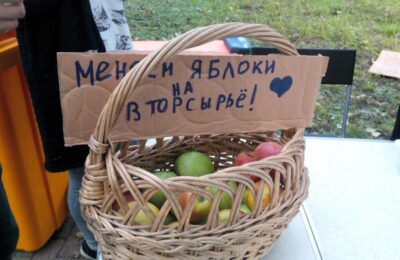 МЕНЯЕМ ЯБЛОКИ
НА
ВТОРСЫРЬЁ!